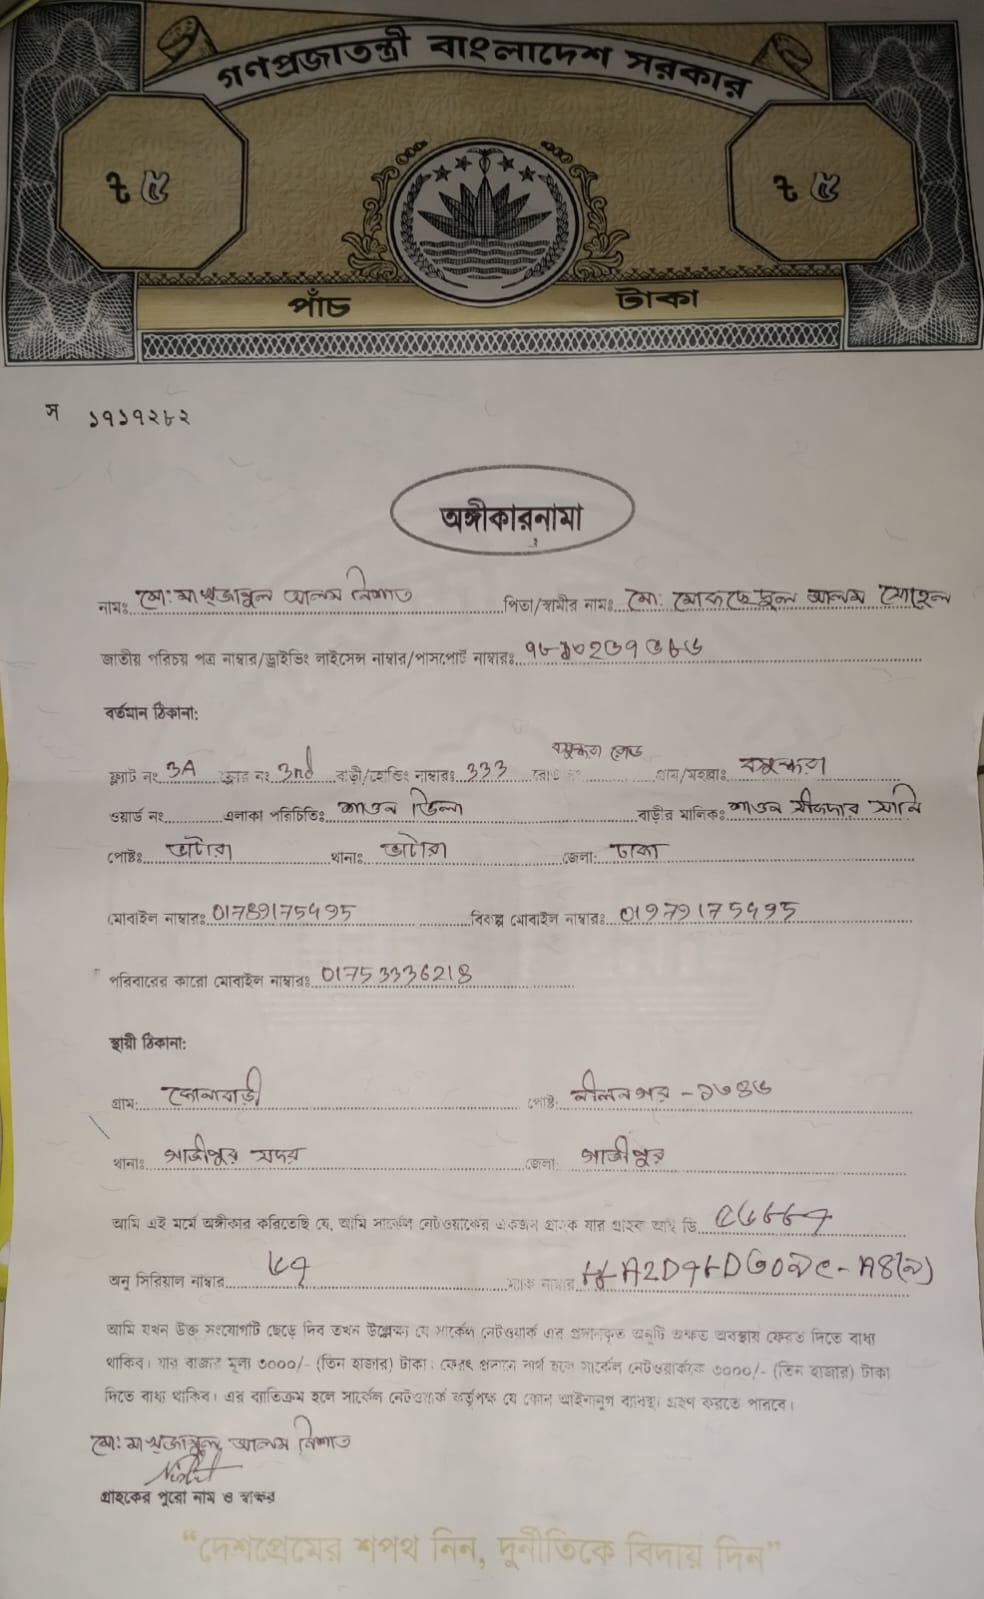 গণপ্রজাতন্ত্রী বাংলাদেশ সরকার
৳ ৫ ৳ ৫
পাঁচ টাকা
স ১৭১৭২৮২
অঙ্গীকারনামা
নামঃ মো: মাখ্জানুল আলম নিশাত পিতা/স্বামীর নাম: মো: আলম সোহেল
জাতীয় পরিচয় পত্র নাম্বার/ড্রাইভিং লাইসেন্স নাম্বার/পাসপোর্ট নাম্বারঃ
বর্তমান ঠিকানা:
ফ্ল্যাট নং 3A ফ্লোর নং 3nd বাড়ী/হোল্ডিং নাম্বারঃ 333 বসুন্ধরা রোড গ্রাম/মহল্লাঃ বসুন্ধরা
ওয়ার্ড নং এলাকা পরিচিতিঃ শাওন ভিলা বাড়ীর মালিকঃ শাওন সানি
পোষ্টঃ ভাটারা থানাঃ ভাটারা জেলা: ঢাকা
মোবাইল নাম্বারঃ 01789175495 বিকল্প মোবাইল নাম্বারঃ 01979175495
পরিবারের কারো মোবাইল নাম্বারঃ 01753336218
স্থায়ী ঠিকানা:
গ্রাম: কোনাবাড়ী পোষ্ট: নীলনগর - ১৭৪৬
থানাঃ গাজীপুর সদর জেলা: গাজীপুর
আমি এই মর্মে অঙ্গীকার করিতেছি যে, আমি সার্কেল নেটওয়ার্কের একজন গ্রাহক যার গ্রাহক আই ডি
অনু সিরিয়াল নাম্বার ৮৭ ম্যাক নাম্বার
আমি যখন উক্ত সংযোগটি ছেড়ে দিব তখন উল্লেখ্য যে সার্কেল নেটওয়ার্ক এর প্রদানকৃত অনুটি অক্ষত অবস্থায় ফেরত দিতে বাধ্য
থাকিব। যার বাজার মূল্য ৩০০০/- (তিন হাজার) টাকা। ফেরৎ প্রদানে ব্যর্থ হলে সার্কেল নেটওয়ার্ককে ৩০০০/- (তিন হাজার) টাকা
দিতে বাধ্য থাকিব। এর ব্যতিক্রম হলে সার্কেল নেটওয়ার্ক কর্তৃপক্ষ যে কোন আইনানুগ ব্যবস্থা গ্রহণ করতে পারবে।
মো: মাখ্জানুল আলম নিশাত
গ্রাহকের পুরো নাম ও স্বাক্ষর
“দেশপ্রেমের শপথ নিন, দুর্নীতিকে বিদায় দিন”